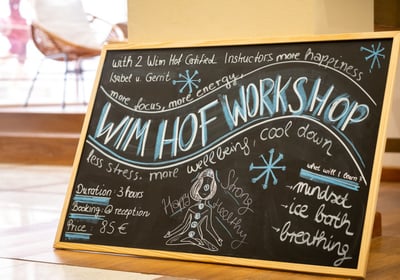 with 2 Wim Hof Certified Instructors more happiness
Isabel u. Gerrit
more focus, more energy,
WIM HOF WORKSHOP
less stress, more wellbeing, cool down
what will I learn?
Duration: 3 hours
Booking: @ reception
Price: 85 €
Happy
Strong
Healthy
→ mindset
→ ice bath
→ breathing